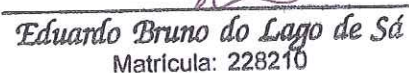 Eduardo Bruno do Lago de Sá
Matrícula: 228210